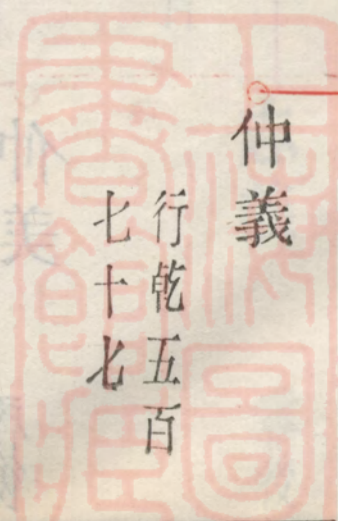 仲義
行乾五百
七十七